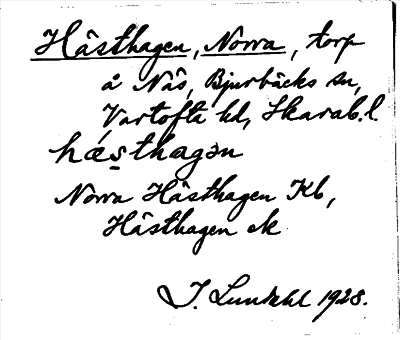 Hästhagen, Norra, torp
å Näs, Bjurbäcks sn,
Vartofta hd, Skarab.l
hǽsthagən
Norra Hästhagen Kb,
Hästhagen ek
J. Lundahl 1928.